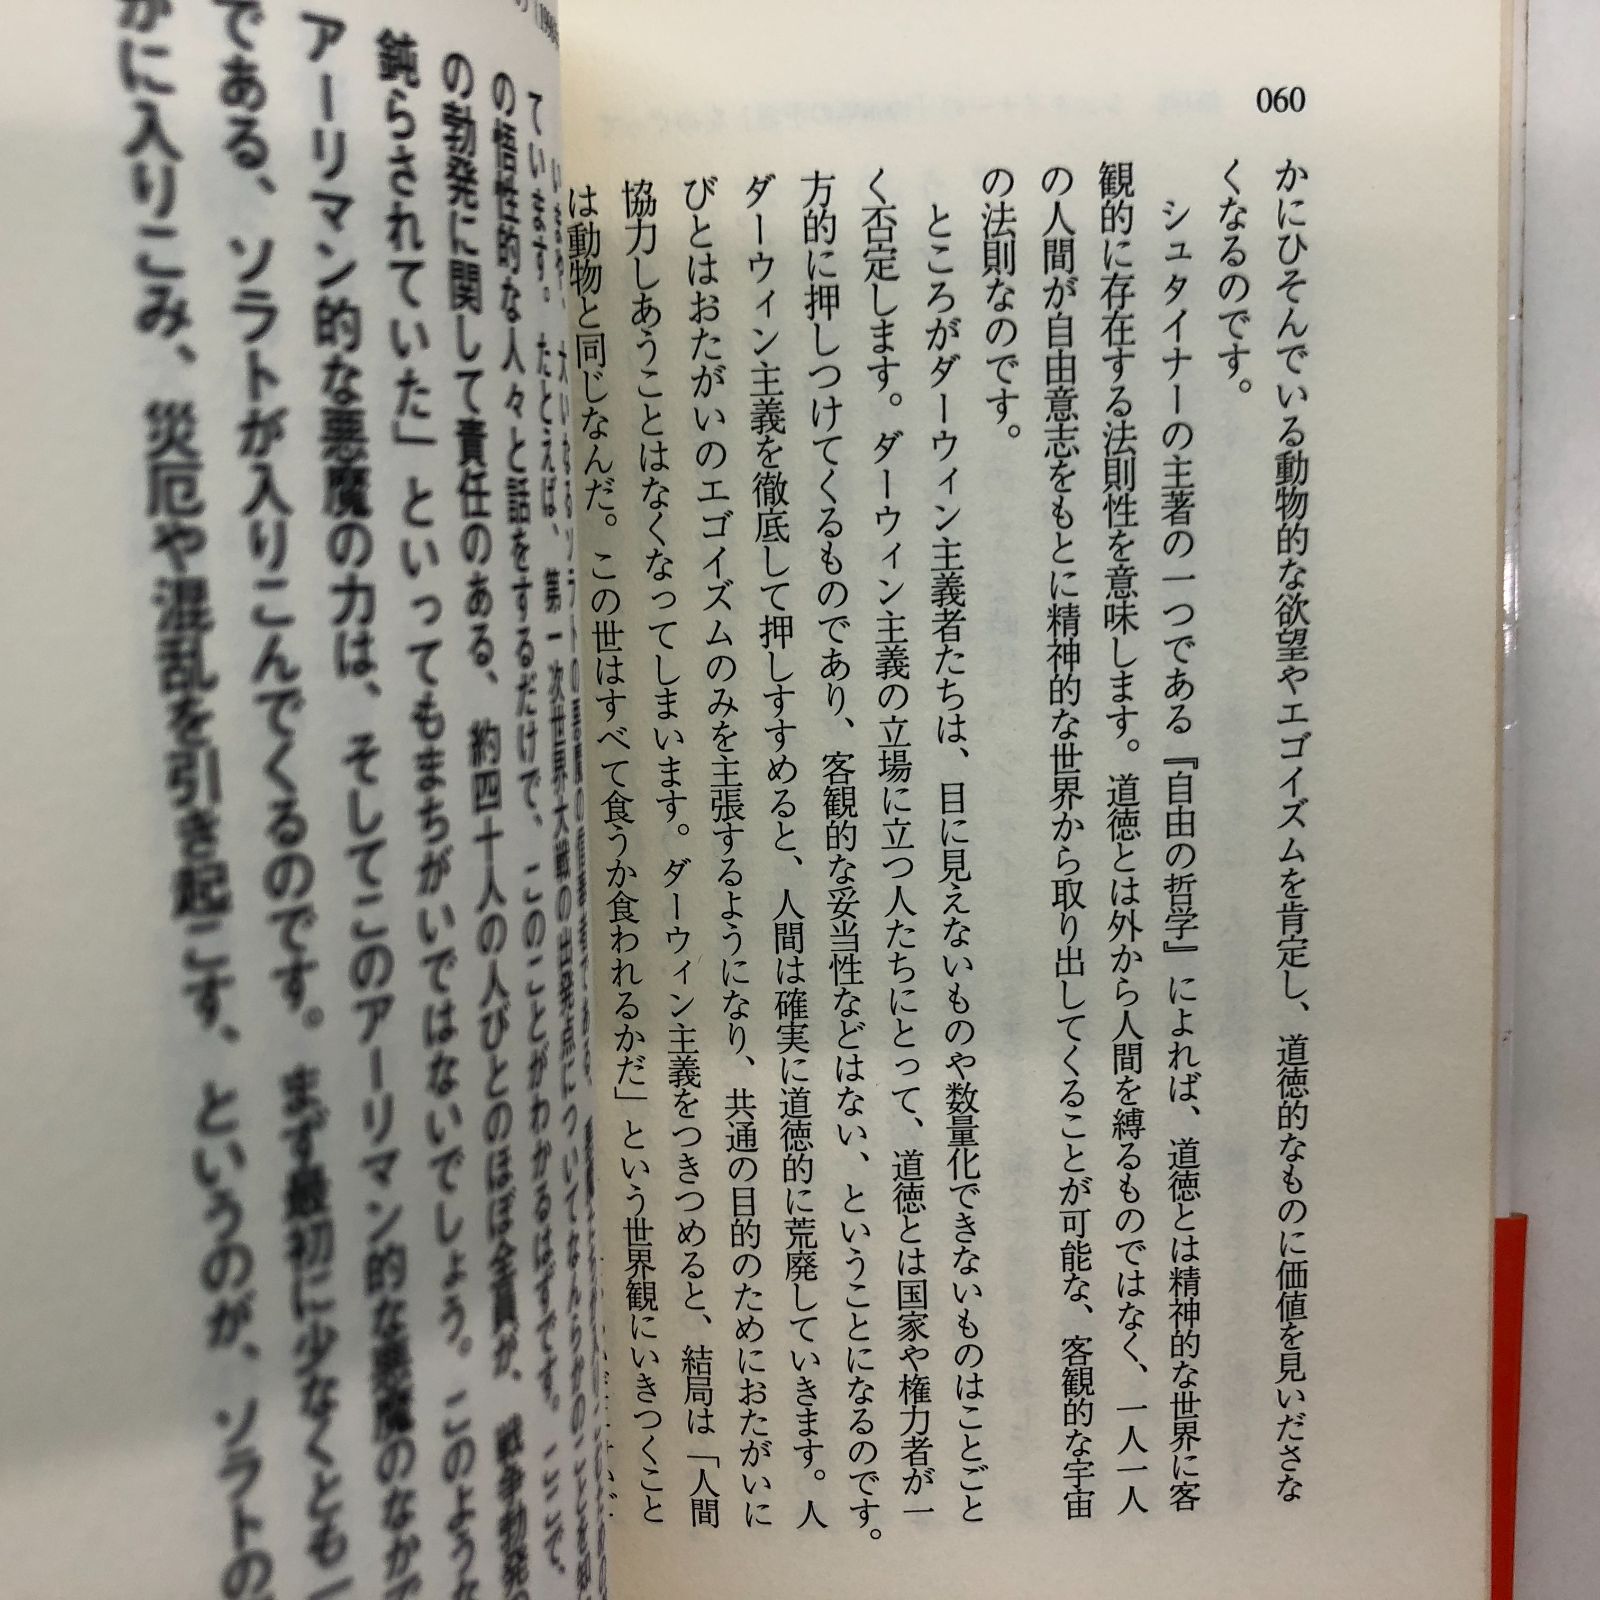 060
かにひそんでいる動物的な欲望やエゴイズムを肯定し、道徳的なものに価値を見いださな
くなるのです。
シュタイナーの主著の一つである『自由の哲学』によれば、道徳とは精神的な世界に客
観的に存在する法則性を意味します。道徳とは外から人間を縛るものではなく、一人一人
の人間が自由意志をもとに精神的な世界から取り出してくることが可能な、客観的な宇宙
の法則なのです。
ところがダーウィン主義者たちは、目に見えないものや数量化できないものはことごと
く否定します。ダーウィン主義の立場に立つ人たちにとって、道徳とは国家や権力者が一
方的に押しつけてくるものであり、客観的な妥当性などはない、ということになるのです。
ダーウィン主義を徹底して押しすすめると、人間は確実に道徳的に荒廃していきます。人
びとはおたがいのエゴイズムのみを主張するようになり、共通の目的のためにおたがいに
協力しあうことはなくなってしまいます。ダーウィン主義をつきつめると、結局は「人間
は動物と同じなんだ。この世はすべて食うか食われるかだ」という世界観にいきつくこと
ています。たとえば、第一次世界大戦の出発点についてなんらかのことを知
の悟性的な人々と話をするだけで、このことがわかるはずです。ここで、
の勃発に関して責任のある、約四十人の人びとのほぼ全員が、戦争勃発
鈍らされていた」といってもまちがいではないでしょう。このような
アーリマン的な悪魔の力は、そしてこのアーリマン的な悪魔のなかで
である、ソラトが入りこんでくるのです。まず最初に少なくとも一
かに入りこみ、災厄や混乱を引き起こす、というのが、ソラトの